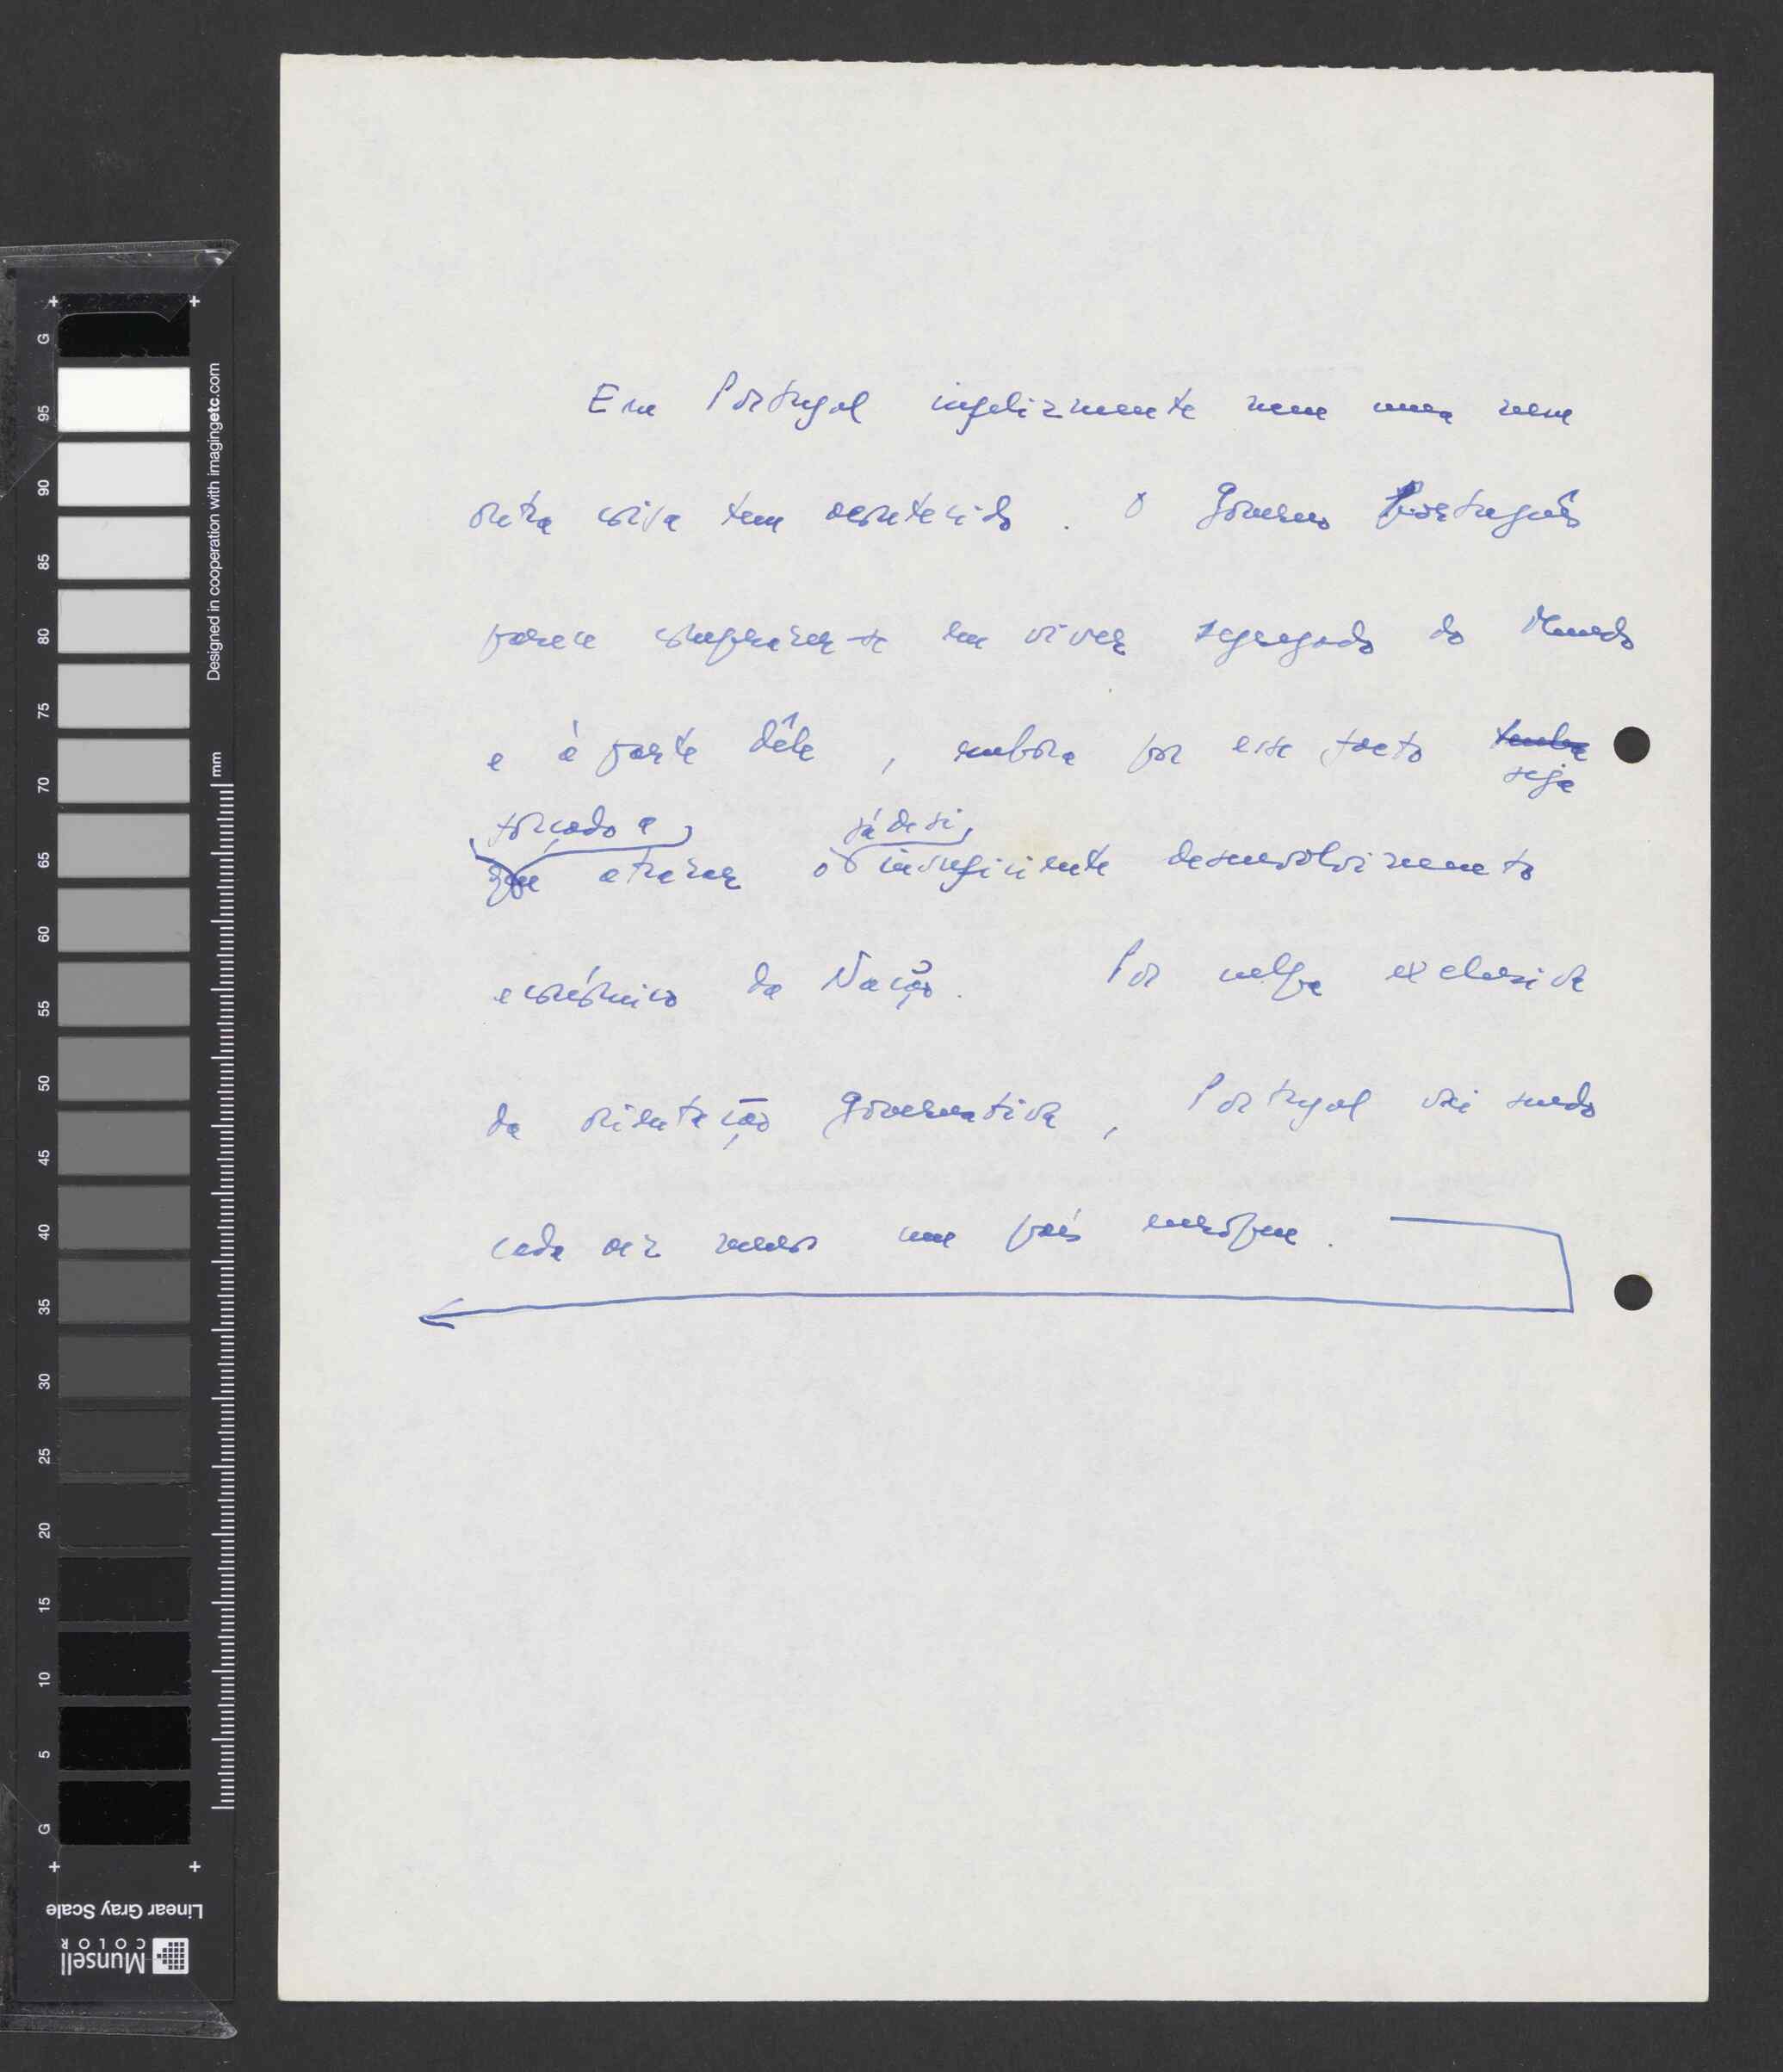 G 95 90 85 80 75 70 65 60 55 50 45 40 35 30 25 20 15 10 5 G
Designed in cooperation with imagingetc.com
mm
Linear Gray Scale
Munsell
COLOR
Em Portugal infelizmente nem uma nem
outra coisa tem acontecido. O Governo Português
parece comprazer-se em viver segregado do Mundo
e à parte dêle, embora por esse facto tenha
seja
forçado a já de si
que atrazar o insuficiente desenvolvimento
económico da Nação. Por culpa exclusiva
da orientação governativa, Portugal vai sendo
cada vez menos um país europeu.